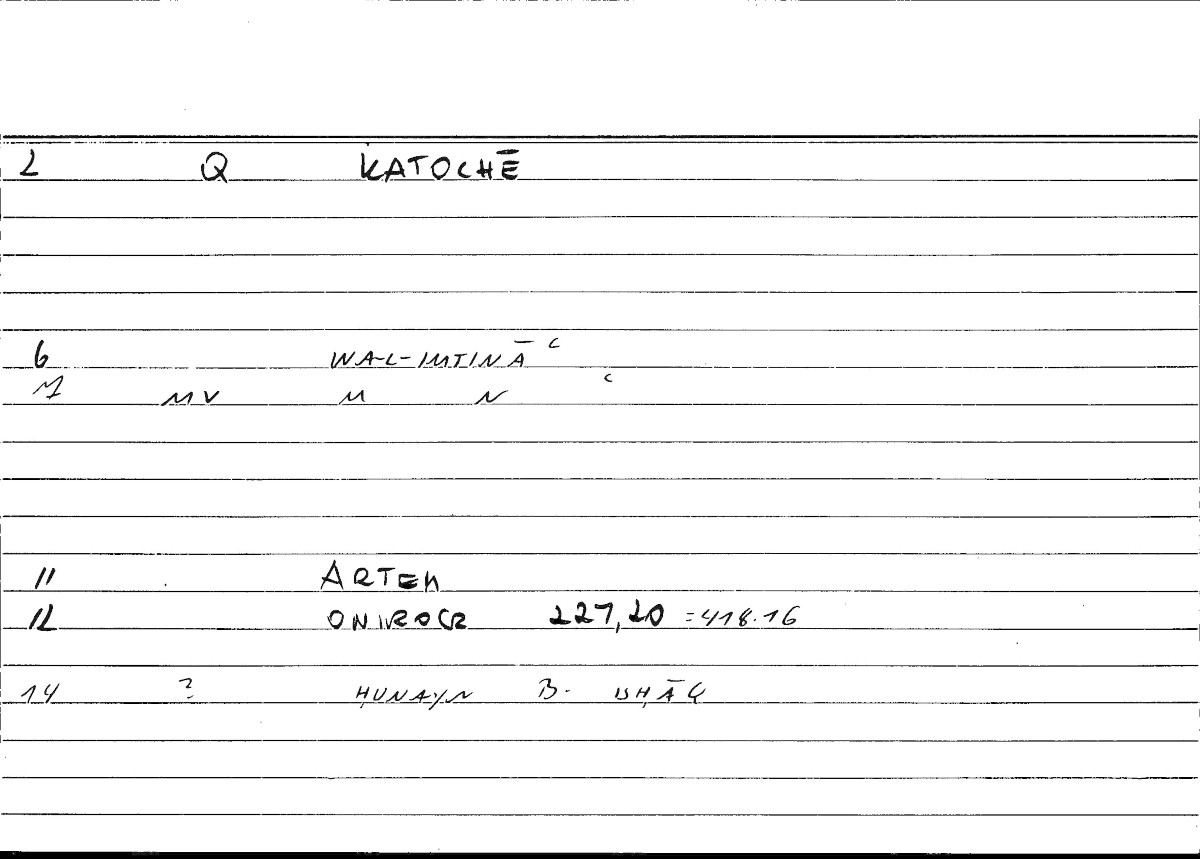 2 Q KATOCHĒ
6 WA-L-IMTINĀ ʿ
7 MV M N ʿ
11 ARTEM
12 ONIROCR 227,20 = 418.16
14 ? ḤUNAYN B. ISḤĀQ